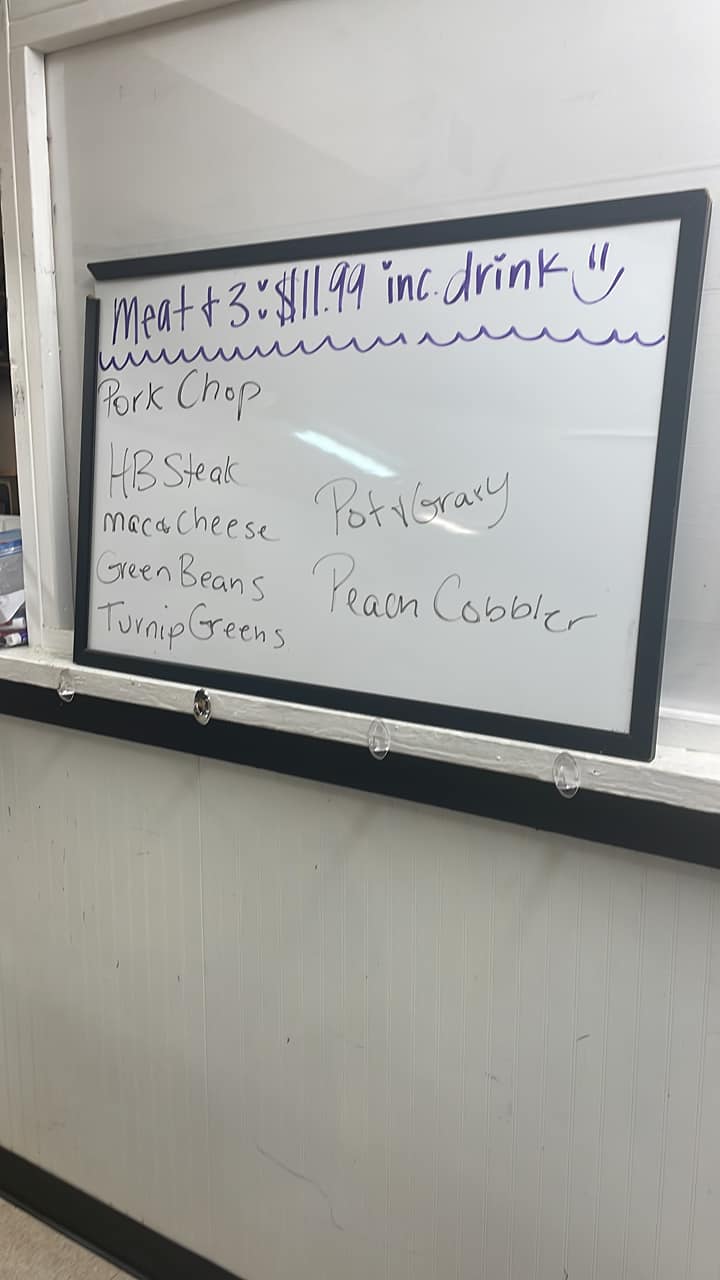 Meat & 3: $11.99 inc. drink
Pork Chop
HB Steak
mac & Cheese
Green Beans
Turnip Greens
Pot & Gravy
Peach Cobbler